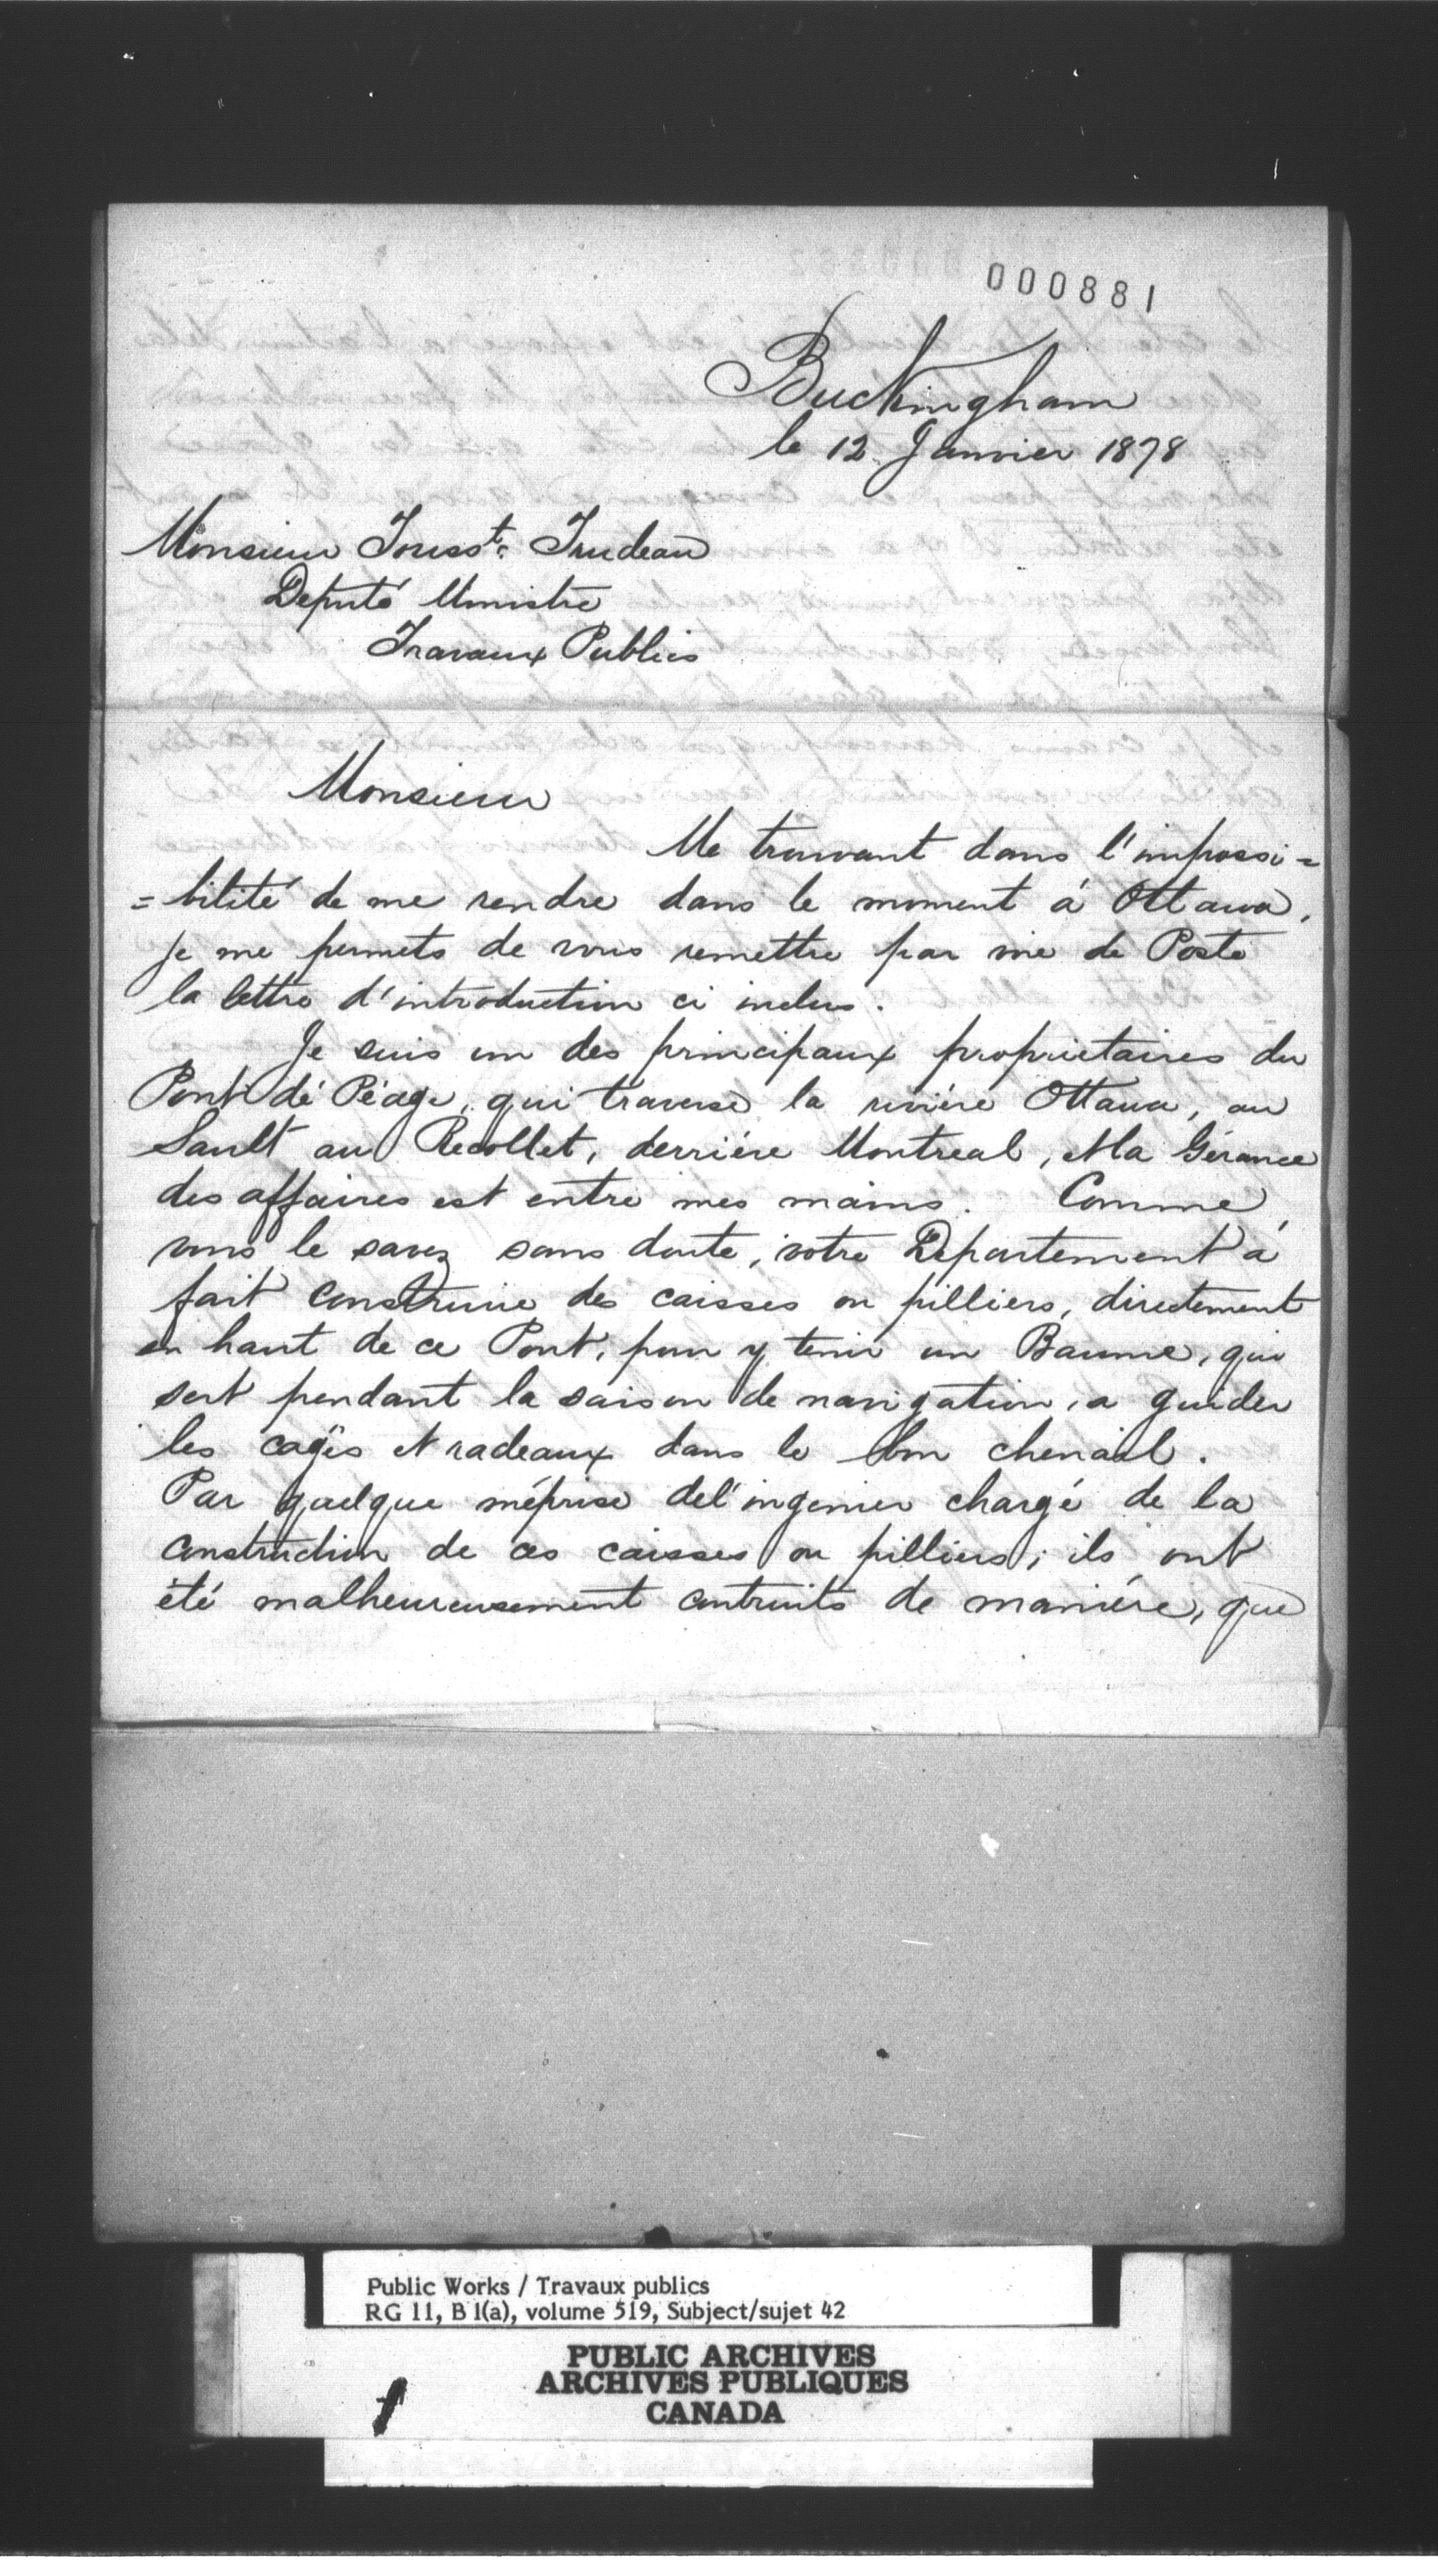 000881
Buckingham
le 12 Janvier 1878
Monsieur Tousst. Trudeau
Deputé Ministre
Travaux Publics
Monsieur
Me trouvant dans l'impossi=
=bilité de me rendre dans le moment á Ottawa,
je me permets de vous remettre par vie de Poste
la lettre d'introduction ci inclus.
Je suis un des principaux proprietaires du
Pont de Péage, qui traverse la rivière Ottawa, au
Sault au Recollet, derriére Montreal, et la Gérance
des affaires est entre mes mains. Comme,
vous le savez sans doute, votre Departement á
fait construire des caisses ou pilliers, directement
en haut de ce Pont, pour y tenir un Baume, qui
sert pendant la saison de navigation, a guider
les cages et radeaux dans le bon chenail.
Par quelque méprise de l'ingenieur chargé de la
construction de ces caisses ou pilliers; ils ont
été malheureusement contruits de maniére, que
Public Works / Travaux publics
RG 11, B 1(a), volume 519, Subject/sujet 42
PUBLIC ARCHIVES
ARCHIVES PUBLIQUES
CANADA